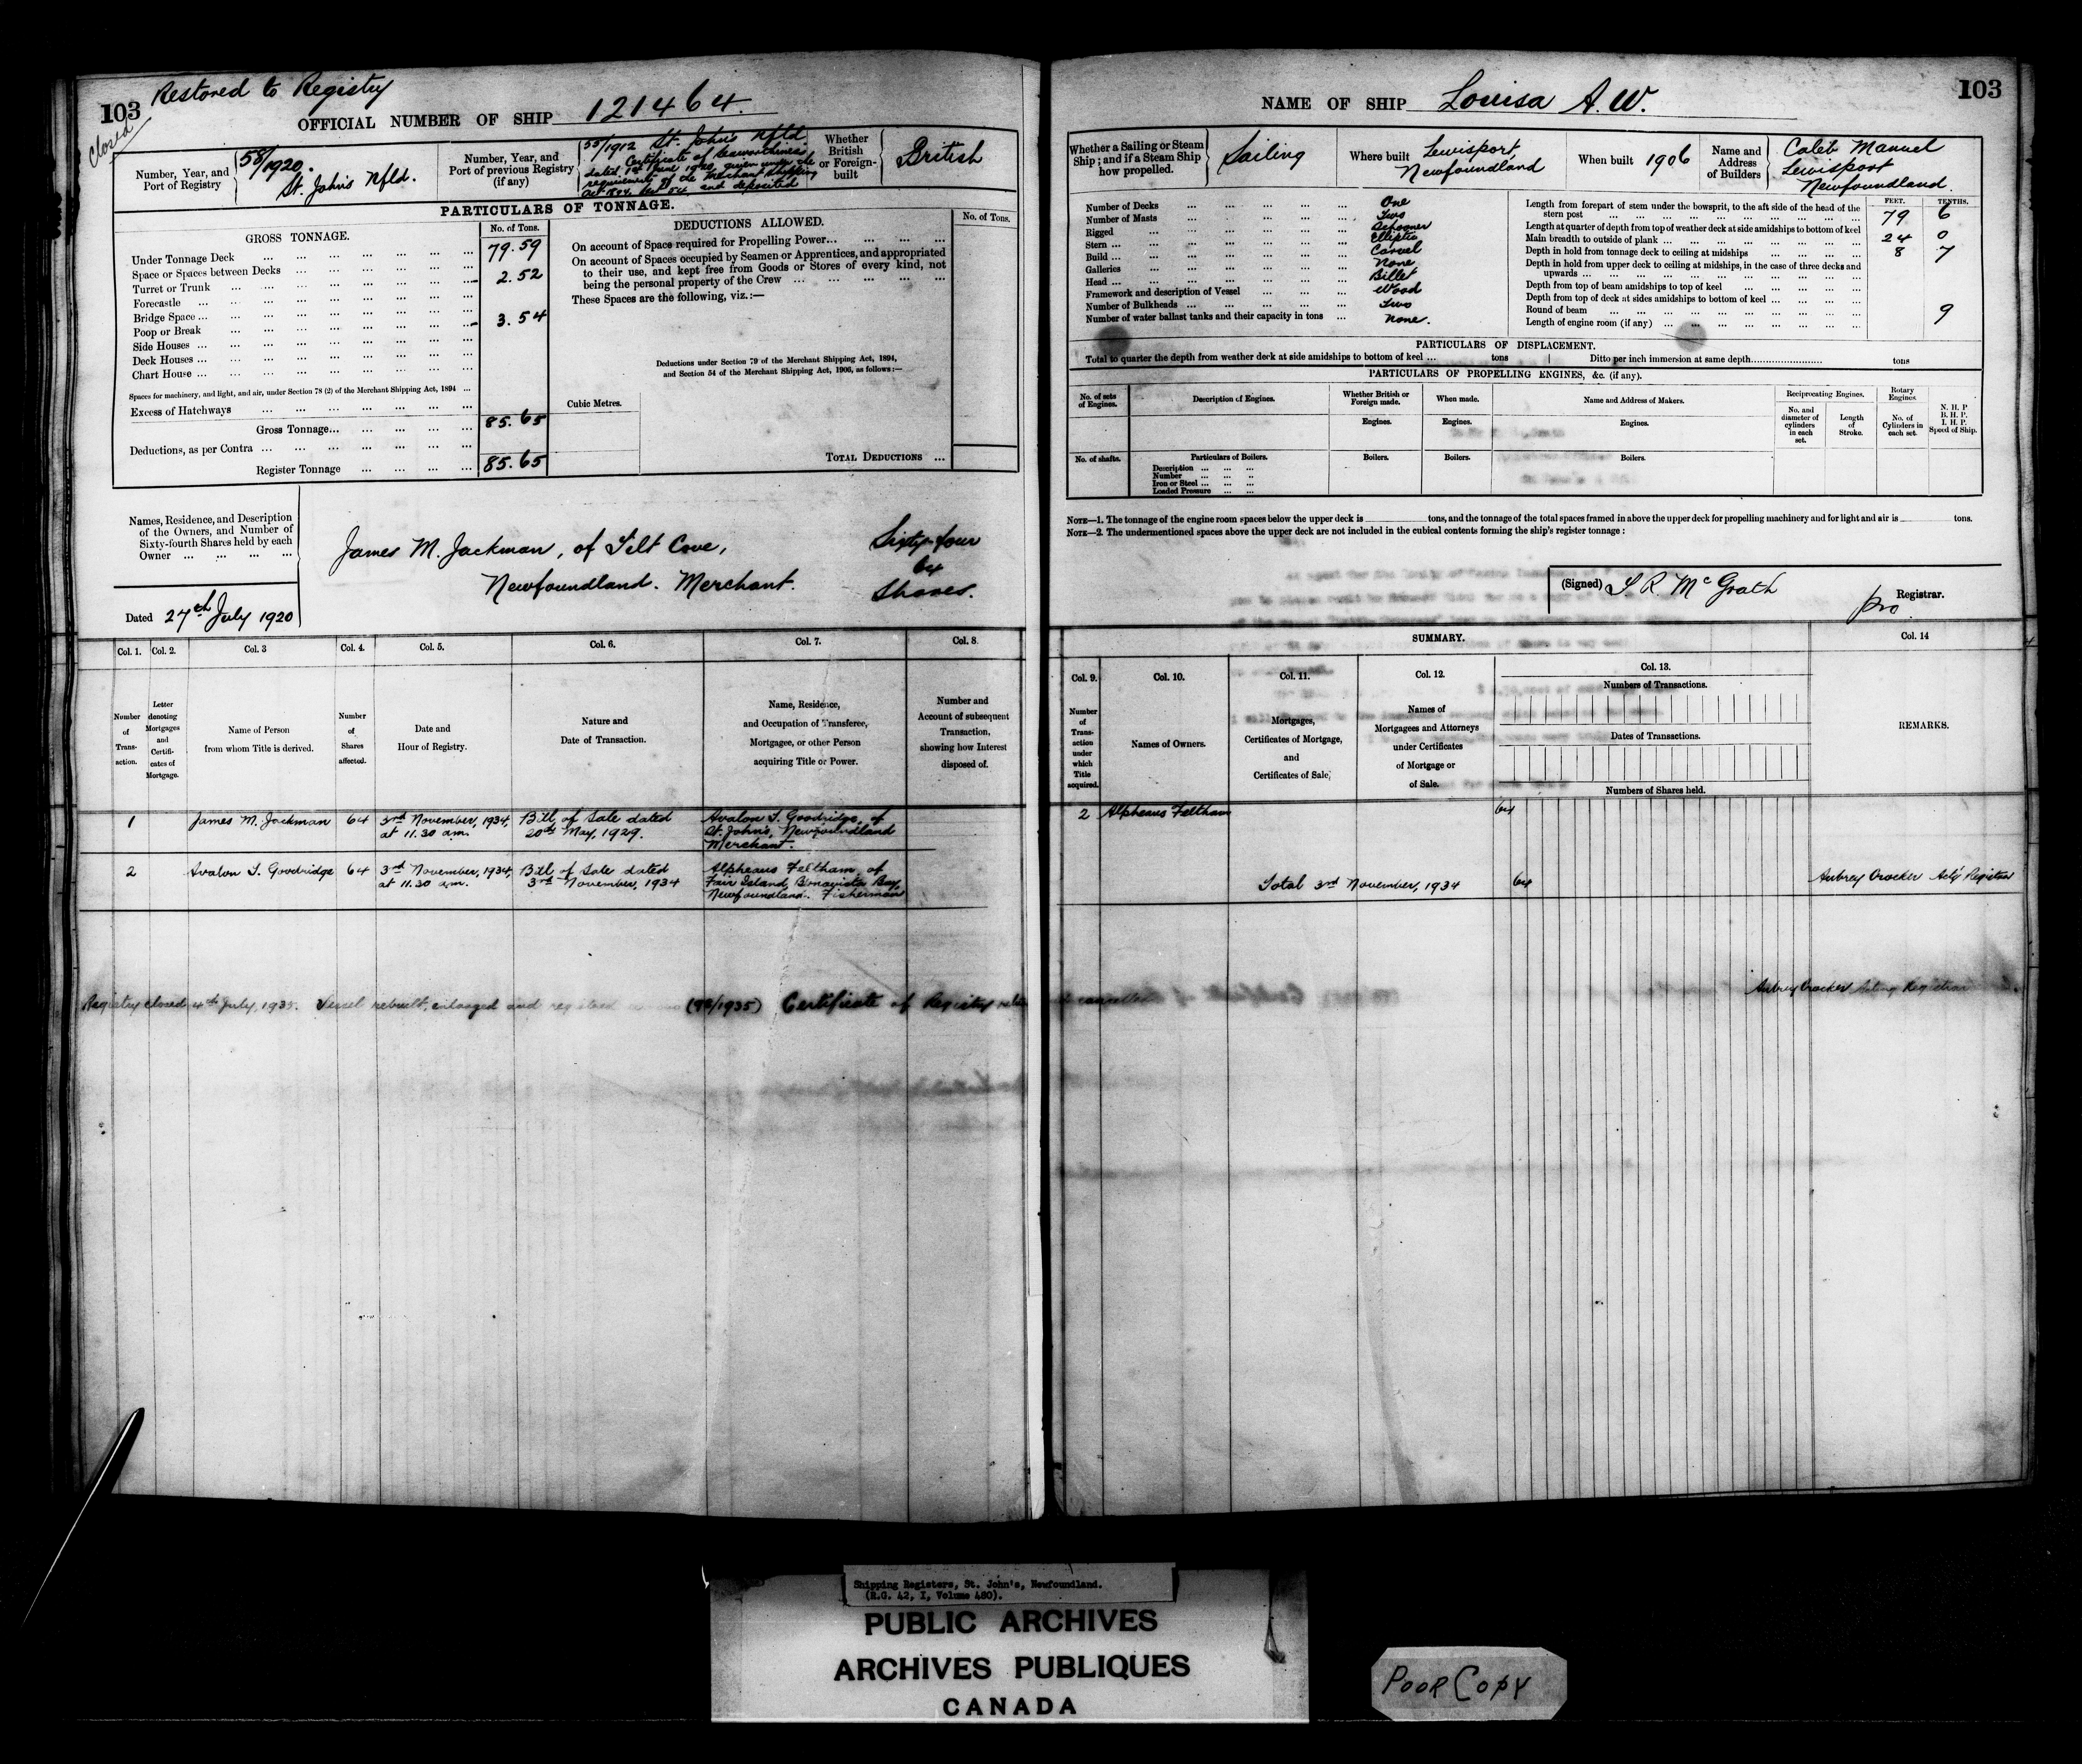 103 Restored to Registry
Closed
OFFICIAL NUMBER OF SHIP 121464.
Number, Year, and Port of Registry 58/1920. St. John's Nfld.
Number, Year, and Port of previous Registry (if any) 55/1912 St. John's Nfld
Certificate of Seaworthiness
dated 1st June 1920, given under the
requirements of the Merchant Shipping
Act 1894, Sect 54 and deposited
Whether British or Foreign-built British
PARTICULARS OF TONNAGE.
GROSS TONNAGE. No. of Tons.
Under Tonnage Deck 79.59
Space or Spaces between Decks
Turret or Trunk 2.52
Forecastle
Bridge Space
Poop or Break 3.54
Side Houses
Deck Houses
Chart House
Spaces for machinery, and light, and air, under Section 78 (2) of the Merchant Shipping Act, 1894
Excess of Hatchways
Gross Tonnage 85.65
Deductions, as per Contra
Register Tonnage 85.65
DEDUCTIONS ALLOWED. No. of Tons.
On account of Space required for Propelling Power
On account of Spaces occupied by Seamen or Apprentices, and appropriated
to their use, and kept free from Goods or Stores of every kind, not
being the personal property of the Crew
These Spaces are the following, viz.:—
Deductions under Section 79 of the Merchant Shipping Act, 1894,
and Section 54 of the Merchant Shipping Act, 1906, as follows:—
Cubic Metres.
TOTAL DEDUCTIONS
Names, Residence, and Description
of the Owners, and Number of
Sixty-fourth Shares held by each
Owner
James M. Jackman, of Tilt Cove,
Newfoundland. Merchant.
Sixty-four
64
Shares.
Dated 27th July 1920
Col. 1. Col. 2. Col. 3 Col. 4. Col. 5. Col. 6. Col. 7. Col. 8.
Number of Transaction.
Letter denoting Mortgages and Certificates of Mortgage.
Name of Person from whom Title is derived.
Number of Shares affected.
Date and Hour of Registry.
Nature and Date of Transaction.
Name, Residence, and Occupation of Transferee, Mortgagee, or other Person acquiring Title or Power.
Number and Account of subsequent Transaction, showing how Interest disposed of.
1 James M. Jackman 64 3rd November, 1934, at 11.30 a.m. Bill of Sale dated 20th May, 1929. Avalon T. Goodridge, of St. John's, Newfoundland Merchant.
2 Avalon T. Goodridge 64 3rd November, 1934, at 11.30 a.m. Bill of Sale dated 3rd November, 1934 Alpheaus Feltham, of Fair Island, Bonavista Bay, Newfoundland. Fisherman
Registry closed 4th July, 1935. Vessel rebuilt, enlarged and registered (92/1935) Certificate of Registry cancelled
Aubrey Crocker Acting Registrar
NAME OF SHIP Louisa A.W. 103
Whether a Sailing or Steam Ship; and if a Steam Ship how propelled. Sailing
Where built Lewisport, Newfoundland
When built 1906
Name and Address of Builders Caleb Manuel Lewisport Newfoundland.
Number of Decks One
Number of Masts Two
Rigged Schooner
Stern Elliptic
Build Carvel
Galleries None
Head Billet
Framework and description of Vessel Wood
Number of Bulkheads Two
Number of water ballast tanks and their capacity in tons None.
FEET. TENTHS.
Length from forepart of stem under the bowsprit, to the aft side of the head of the stern post 79 6
Length at quarter of depth from top of weather deck at side amidships to bottom of keel
Main breadth to outside of plank 24 0
Depth in hold from tonnage deck to ceiling at midships 8 7
Depth in hold from upper deck to ceiling at midships, in the case of three decks and upwards
Depth from top of beam amidships to top of keel
Depth from top of deck at sides amidships to bottom of keel
Round of beam 9
Length of engine room (if any)
PARTICULARS OF DISPLACEMENT.
Total to quarter the depth from weather deck at side amidships to bottom of keel tons Ditto per inch immersion at same depth tons
PARTICULARS OF PROPELLING ENGINES, &c. (if any).
No. of sets of Engines.
Description of Engines.
Whether British or Foreign made.
When made.
Name and Address of Makers.
Reciprocating Engines.
Rotary Engines.
No. and diameter of cylinders in each set.
Length of Stroke.
No. of Cylinders in each set.
N. H. P
B. H. P.
I. H. P.
Speed of Ship.
Engines. Engines. Engines.
No. of shafts.
Particulars of Boilers.
Boilers. Boilers. Boilers.
Description
Number
Iron or Steel
Loaded Pressure
NOTE—1. The tonnage of the engine room spaces below the upper deck is tons, and the tonnage of the total spaces framed in above the upper deck for propelling machinery and for light and air is tons.
NOTE—2. The undermentioned spaces above the upper deck are not included in the cubical contents forming the ship's register tonnage:
(Signed) T R McGrath
pro Registrar.
SUMMARY.
Col. 9. Col. 10. Col. 11. Col. 12. Col. 13. Col. 14
Number of Transaction under which Title acquired.
Names of Owners.
Mortgages, Certificates of Mortgage, and Certificates of Sale,
Names of Mortgagees and Attorneys under Certificates of Mortgage or of Sale.
Numbers of Transactions.
Dates of Transactions.
Numbers of Shares held.
REMARKS.
2 Alpheaus Feltham 64
Total 3rd November, 1934 64 Aubrey Crocker Act'g Registrar
Shipping Registers, St. John's, Newfoundland.
(R.G. 42, I, Volume 480).
PUBLIC ARCHIVES
ARCHIVES PUBLIQUES
CANADA
POOR COPY